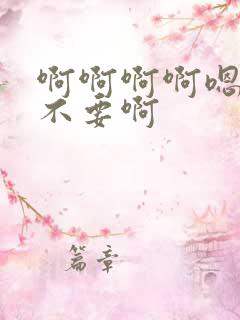 啊啊啊啊嗯
不要啊
篇章